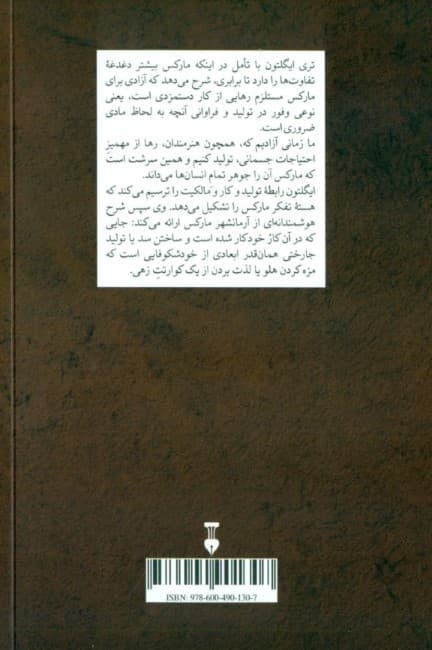 تری ایگلتون با تأمل در اینکه مارکس بیشتر دغدغهٔ
تفاوت‌ها را دارد تا برابری، شرح می‌دهد که آزادی برای
مارکس مستلزم رهایی از کار دستمزدی است، یعنی
نوعی وفور در تولید و فراوانی آنچه به لحاظ مادی
ضروری است.
ما زمانی آزادیم که، همچون هنرمندان، رها از مهمیز
احتیاجات جسمانی، تولید کنیم و همین سرشت است
که مارکس آن را جوهر تمام انسان‌ها می‌داند.
ایگلتون رابطهٔ تولید و کار و مالکیت را ترسیم می‌کند که
هستهٔ تفکر مارکس را تشکیل می‌دهد. وی سپس شرح
هوشمندانه‌ای از آرمانشهر مارکس ارائه می‌کند: جایی
که در آن کار خودکار شده است و ساختن سد یا تولید
جارختی همان‌قدر ابعادی از خودشکوفایی است که
مزه کردن هلو یا لذت بردن از یک کوارتتِ زهی.
ISBN: 978-600-490-130-7